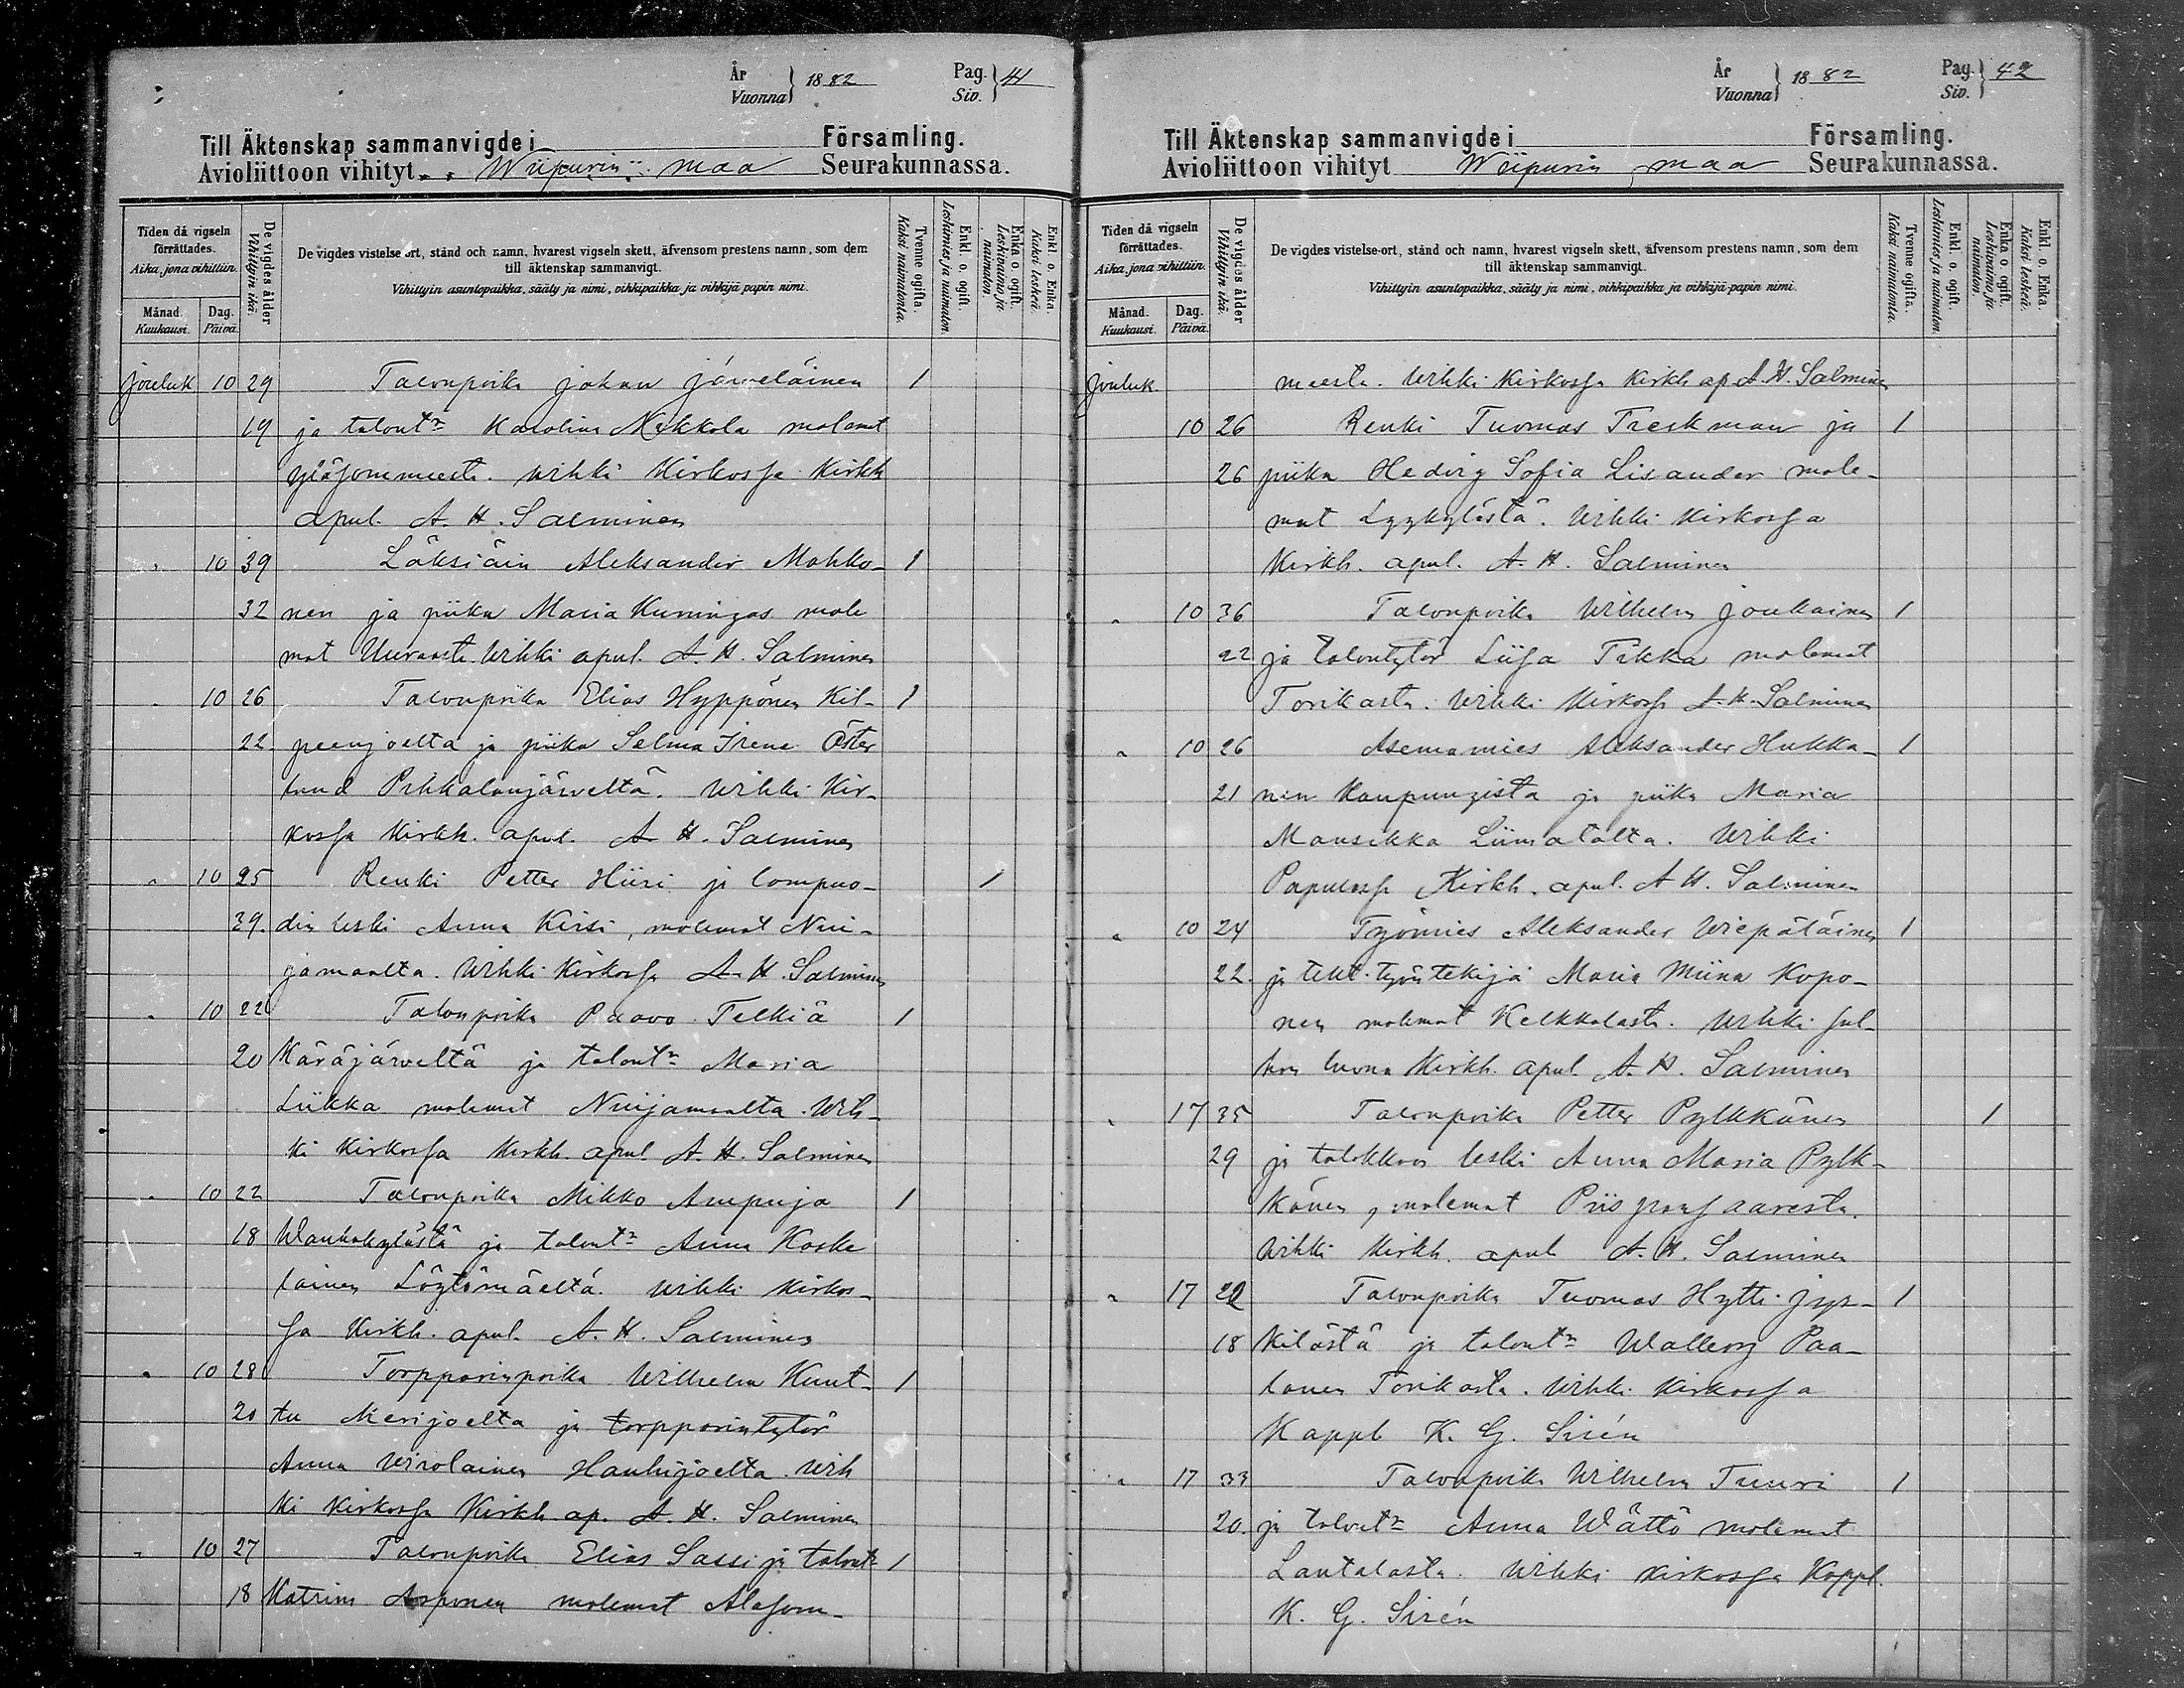 År Vuonna } 1882 Pag. Siv. } 41
Till Äktenskap sammanvigde i Församling.
Avioliittoon vihityt Wiipurin maa Seurakunnassa.
Tiden då vigseln förrättades. Aika, jona vihittiin.
Månad. Kuukausi.
Dag. Päivä.
De vigdes ålder Vihittyin ikä.
De vigdes vistelse-ort, stånd och namn, hvarest vigseln skett, äfvensom prestens namn, som dem
till äktenskap sammanvigt.
Vihittyin asuntopaikka, sääty ja nimi, vihkipaikka ja vihkijä papin nimi.
Tvenne ogifta. Kaksi naimatonta.
Enkl. o. ogift. Leskimies ja naimaton.
Enka o. ogift. Leskivaimo ja naimaton.
Enkl. o. Enka. Kaksi leskeä.
Jouluk 10 29 Talonpoika Johan Järveläinen 1
19 ja talont:r Karolina Nekkola molemat
Yläsommeesta. Wihki Kirkossa Kirkh
apul. A. H. Salminen
" 10 39 Läksiäin Aleksander Mahko- 1
32 nen ja piika Maria Kuningas mole
mat Uuraasta. Wihki apul. A. H. Salminen
" 10 26 Talonpoika Elias Hyppönen Kil- 1
22. peenjoelta ja piika Selma Irene Öster
lund Pihkalanjärveltä. Wihki Kir-
kossa Kirkh. apul. A. H. Salminen
" 10 25 Renki Petter Hiiri ja lompuo- 1
39. din leski Anna Kirsi, molemat Nui-
jamaalta. Wihki Kirkossa A. H. Salminen
" 10 22 Talonpoika Paavo Telkiä 1
20 Käräjärveltä ja talont:r Maria
Liikka molemat Nuijamaalta. Wih-
ki Kirkossa Kirkh. apul. A. H. Salminen
" 10 22 Talonpoika Mikko Ampuja 1
18 Wanhakylästä ja talont:r Anna Koske
lainen Löytömäeltä. Wihki Kirkos-
sa Kirkh. apul. A. H. Salminen
" 10 28 Torpparinpoika Wilhelm Kunt- 1
20 tu Merijoelta ja torpparintytör
Anna Wirolainen Hanhijoelta. Wih
ki Kirkossa Kirkh. ap. A. H. Salminen
" 10 27 Talonpoika Elias Sassi ja talont:r 1
18 Katrina Asponen molemat Alasom-
År Vuonna } 1882 Pag. Siv. } 42
Till Äktenskap sammanvigde i Församling.
Avioliittoon vihityt Wiipurin maa Seurakunnassa.
Tiden då vigseln förrättades. Aika, jona vihittiin.
Månad. Kuukausi.
Dag. Päivä.
De vigdes ålder Vihittyin ikä.
De vigdes vistelse-ort, stånd och namn, hvarest vigseln skett, äfvensom prestens namn, som dem
till äktenskap sammanvigt.
Vihittyin asuntopaikka, sääty ja nimi, vihkipaikka ja vihkijä-papin nimi.
Tvenne ogifta. Kaksi naimatonta.
Enkl. o. ogift. Leskimies ja naimaton.
Enka o. ogift. Leskivaimo ja naimaton.
Enkl. o. Enka. Kaksi leskeä.
Jouluk meesta. Wihki Kirkossa Kirkh ap A. H. Salminen
10 26 Renki Tuomas Treskman ja 1
26 piika Hedvig Sofia Lisander mole-
mat Lyykylästä. Wihki Kirkossa
Kirkh. apul. A. H. Salminen
" 10 36 Talonpoika Wilhelm Joukainen 1
22 ja talontytör Liisa Tikka molemat
Torikasta. Wihki Kirkossa A. H. Salminen
" 10 26 Asemamies Aleksander Hukka- 1
21 nen Kaupungista ja piika Maria
Mansikka Liimatalta. Wihki
Papulassa Kirkh. apul. A. H. Salminen
" 10 24 Työmies Aleksander Wiepäläinen 1
22. ja teht. työntekijä Maria Miina Kopo-
nen molemat Kelkkalasta. Wihki sul-
hon luona Kirkh. apul. A. H. Salminen
" 17 35 Talonpoika Petter Pylkkänen 1
29 ja talokkaan leski Anna Maria Pylk-
känen, molemat Piispansaaresta.
Wihki Kirkh. apul. A. H. Salminen
" 17 22 Talonpoika Tuomas Hytti Jyr- 1
18 kilästä ja talont:r Walborg Paa-
lanen Torikasta. Wihki Kirkossa
Kappl K. G. Sirén
" 17 33 Talonpoika Wilhelm Tuuri 1
20. ja talont:r Anna Wättö molemat
Lantalasta. Wihki Kirkossa Kappl.
K. G. Sirén